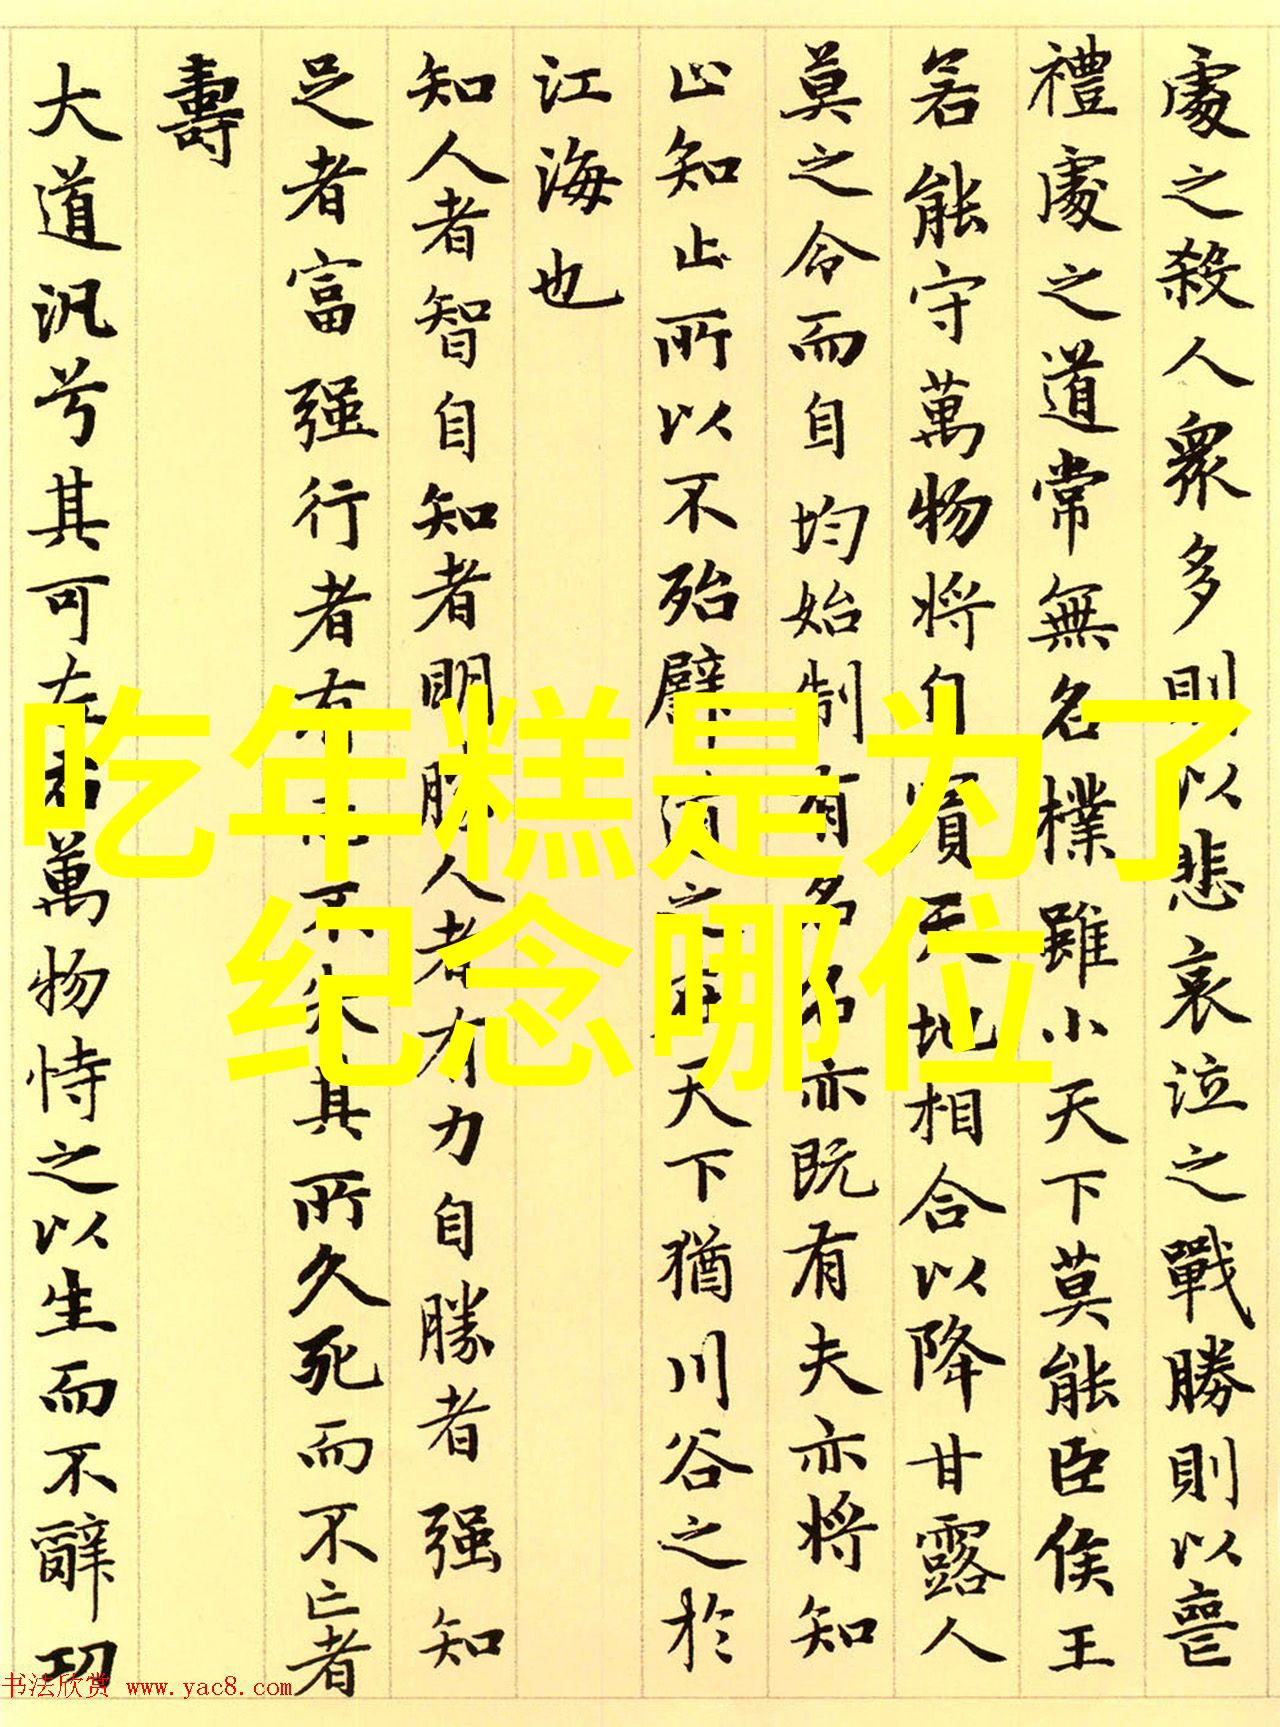 處之殺人衆多則以悲哀泣之戰勝則以喪
禮處之道常無名樸雖小天下莫能臣侯王
若能守萬物將自賓天地相合以降甘露人
莫之令而自均始制有名名亦既有夫亦將知
止知止所以不殆譬道之在天下猶川谷之於
江海也
知人者智自知者明勝人者有力自勝者强知
足者富强行者有不失其所久死而不亡者
壽
大道汎兮其可左右萬物恃之以生而不辭功
吃年糕是为了
纪念哪位
书法欣赏 www.yac8.com